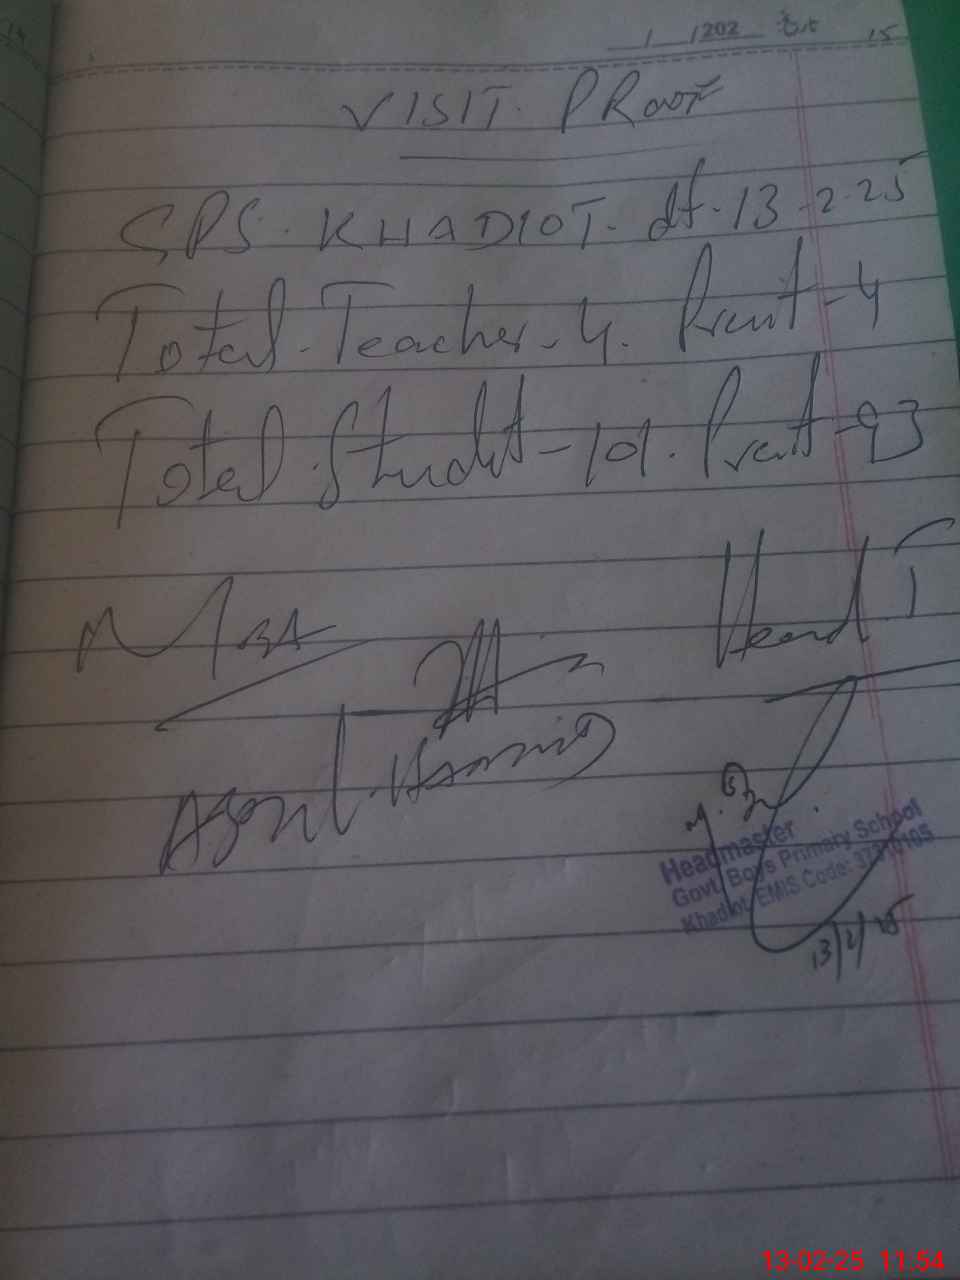 1 /202 15
VISIT PRooF
GPS. KHADIOT. dt. 13-2-25
Total Teacher-4. Prent-4
Total Studt-101. Prent-93
Head T
Headmaster
Govt. Boys Primary School
Khadiot, EMIS Code:
13/2/25
13-02-25 11:54